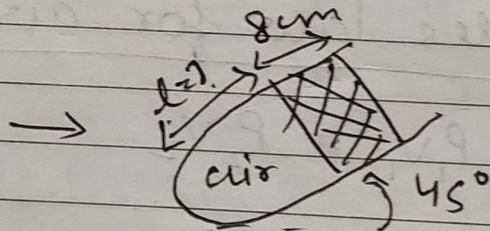 8cm
l=?
air
45°